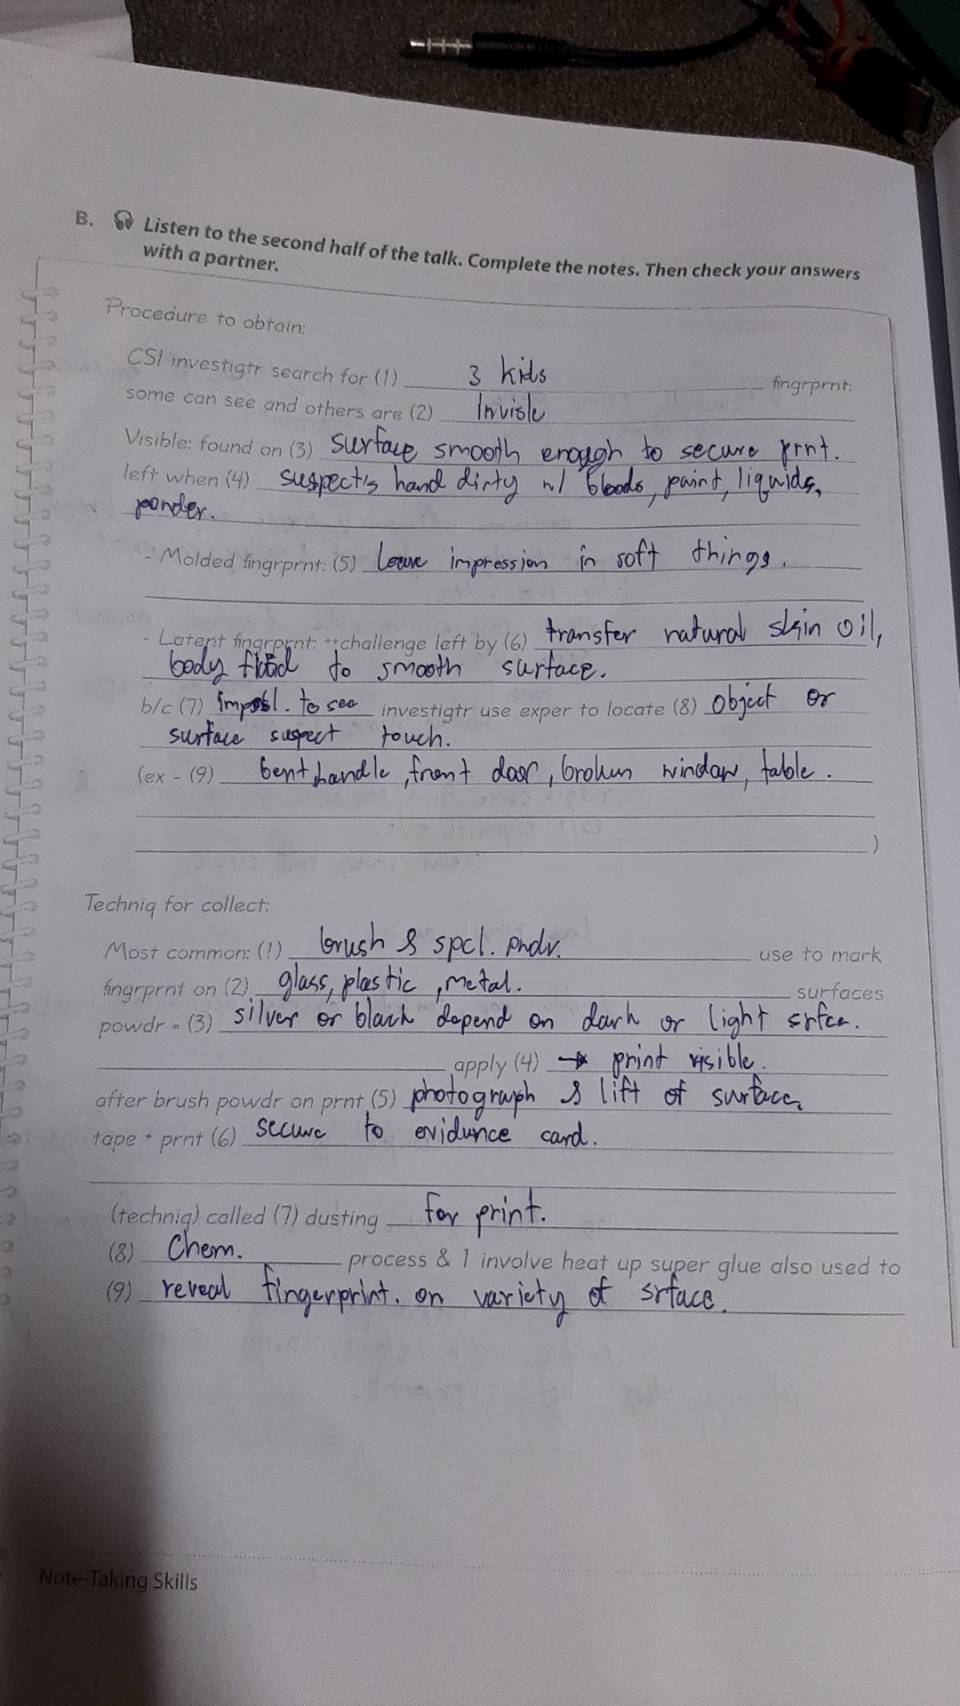 B. Listen to the second half of the talk. Complete the notes. Then check your answers
with a partner.
Procedure to obtain:
CSI investigtr search for (1) 3 kids fingrprnt:
some can see and others are (2) Invisle
Visible: found on (3) surface smooth enough to secure prnt.
left when (4) suspect's hand dirty w/ bloods, paint, liquids,
ponder.
- Molded fingrprnt: (5) leave impression in soft things.
- Latent fingrprnt: **challenge left by (6) transfer natural skin oil,
body fluid to smooth surface.
b/c (7) impossl. to see investigtr use exper to locate (8) object or
surface suspect touch.
(ex - (9) bent handle, front door, broken window, table.
)
Techniq for collect:
Most common: (1) brush & spcl. pndr. use to mark
fingrprnt on (2) glass, plastic, metal. surfaces
powdr = (3) silver or black depend on dark or light srfce.
apply (4) → print visible.
after brush powdr on prnt (5) photograph & lift of surface,
tape + prnt (6) secure to evidunce card.
(techniq) called (7) dusting for print.
(8) Chem. process & 1 involve heat up super glue also used to
(9) reveal fingerprint. on variety of srface.
Note-Taking Skills